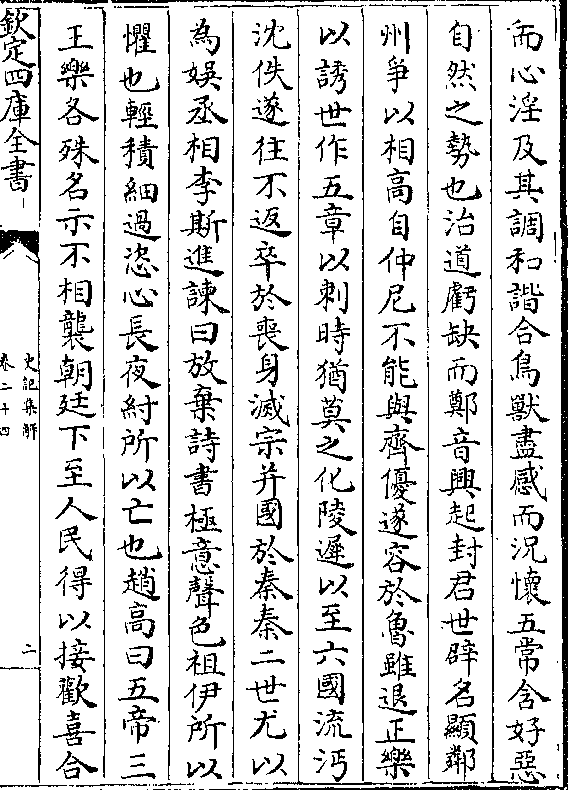 而心淫及其調和諧合鳥獸盡感而況懷五常含好惡
自然之勢也治道虧缺而鄭音興起封君世辟名顯鄰
州爭以相高自仲尼不能與齊優遂容於魯雖退正樂
以誘世作五章以刺時猶莫之化陵遲以至六國流沔
沈佚遂往不返卒於喪身滅宗并國於秦秦二世尤以
為娛丞相李斯進諫曰放棄詩書極意聲色祖伊所以
懼也輕積細過恣心長夜紂所以亡也趙高曰五帝三
王樂各殊名示不相襲朝廷下至人民得以接歡喜合
欽定四庫全書
史記集解
卷二十四
二